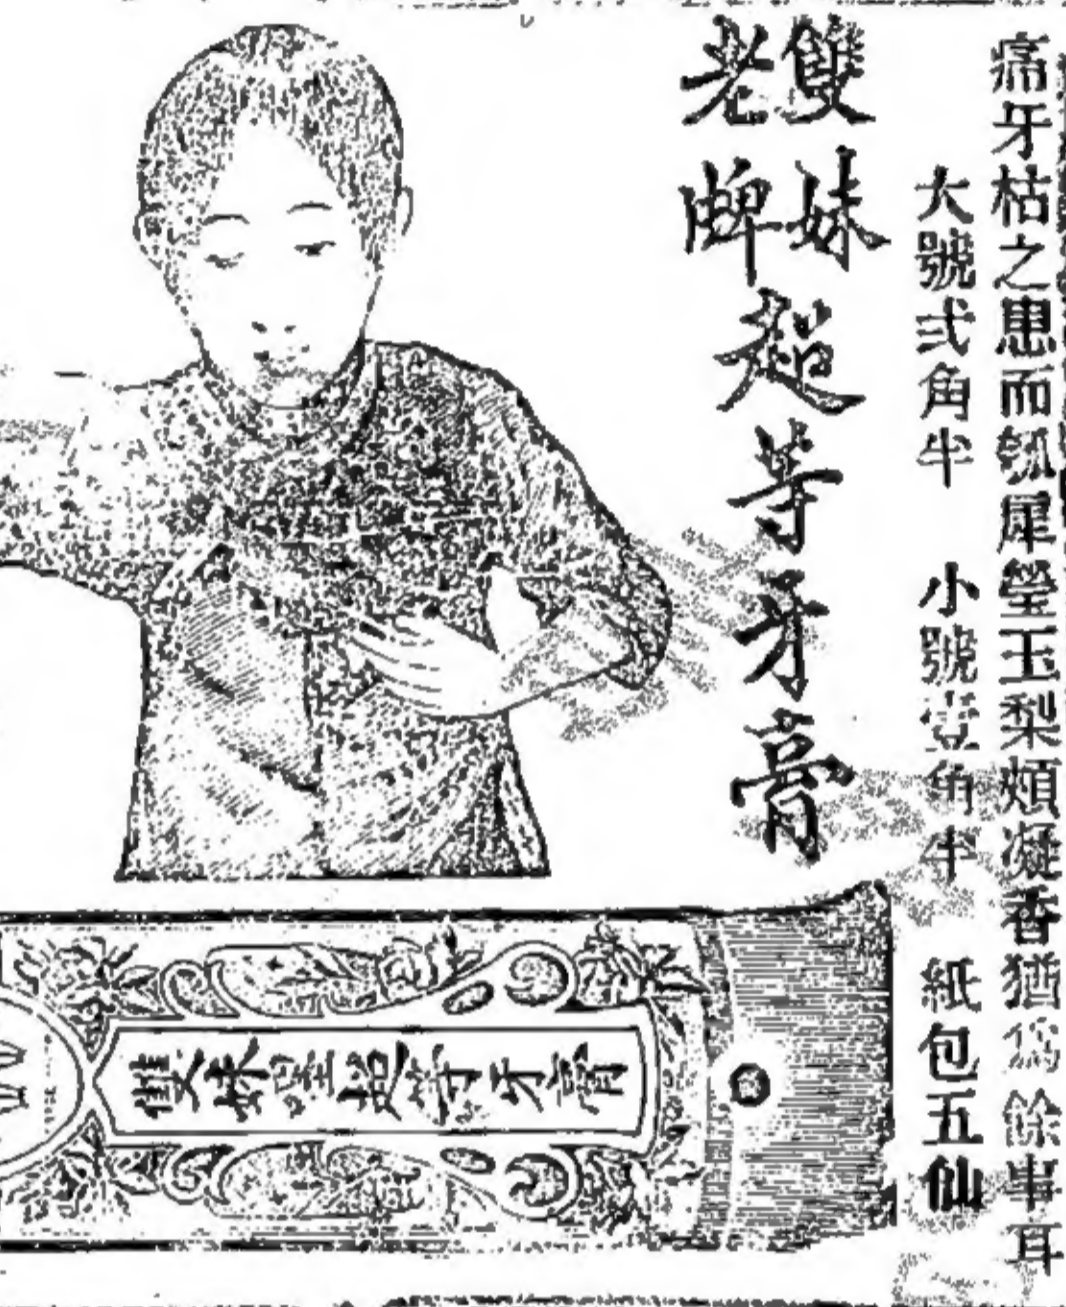 痛牙枯之患而瓠犀瑩玉梨頰凝香猶爲餘事耳
大號弍角半　小號壹角半　紙包五仙
雙妹
老牌
超等牙膏
雙妹嚜超等牙膏